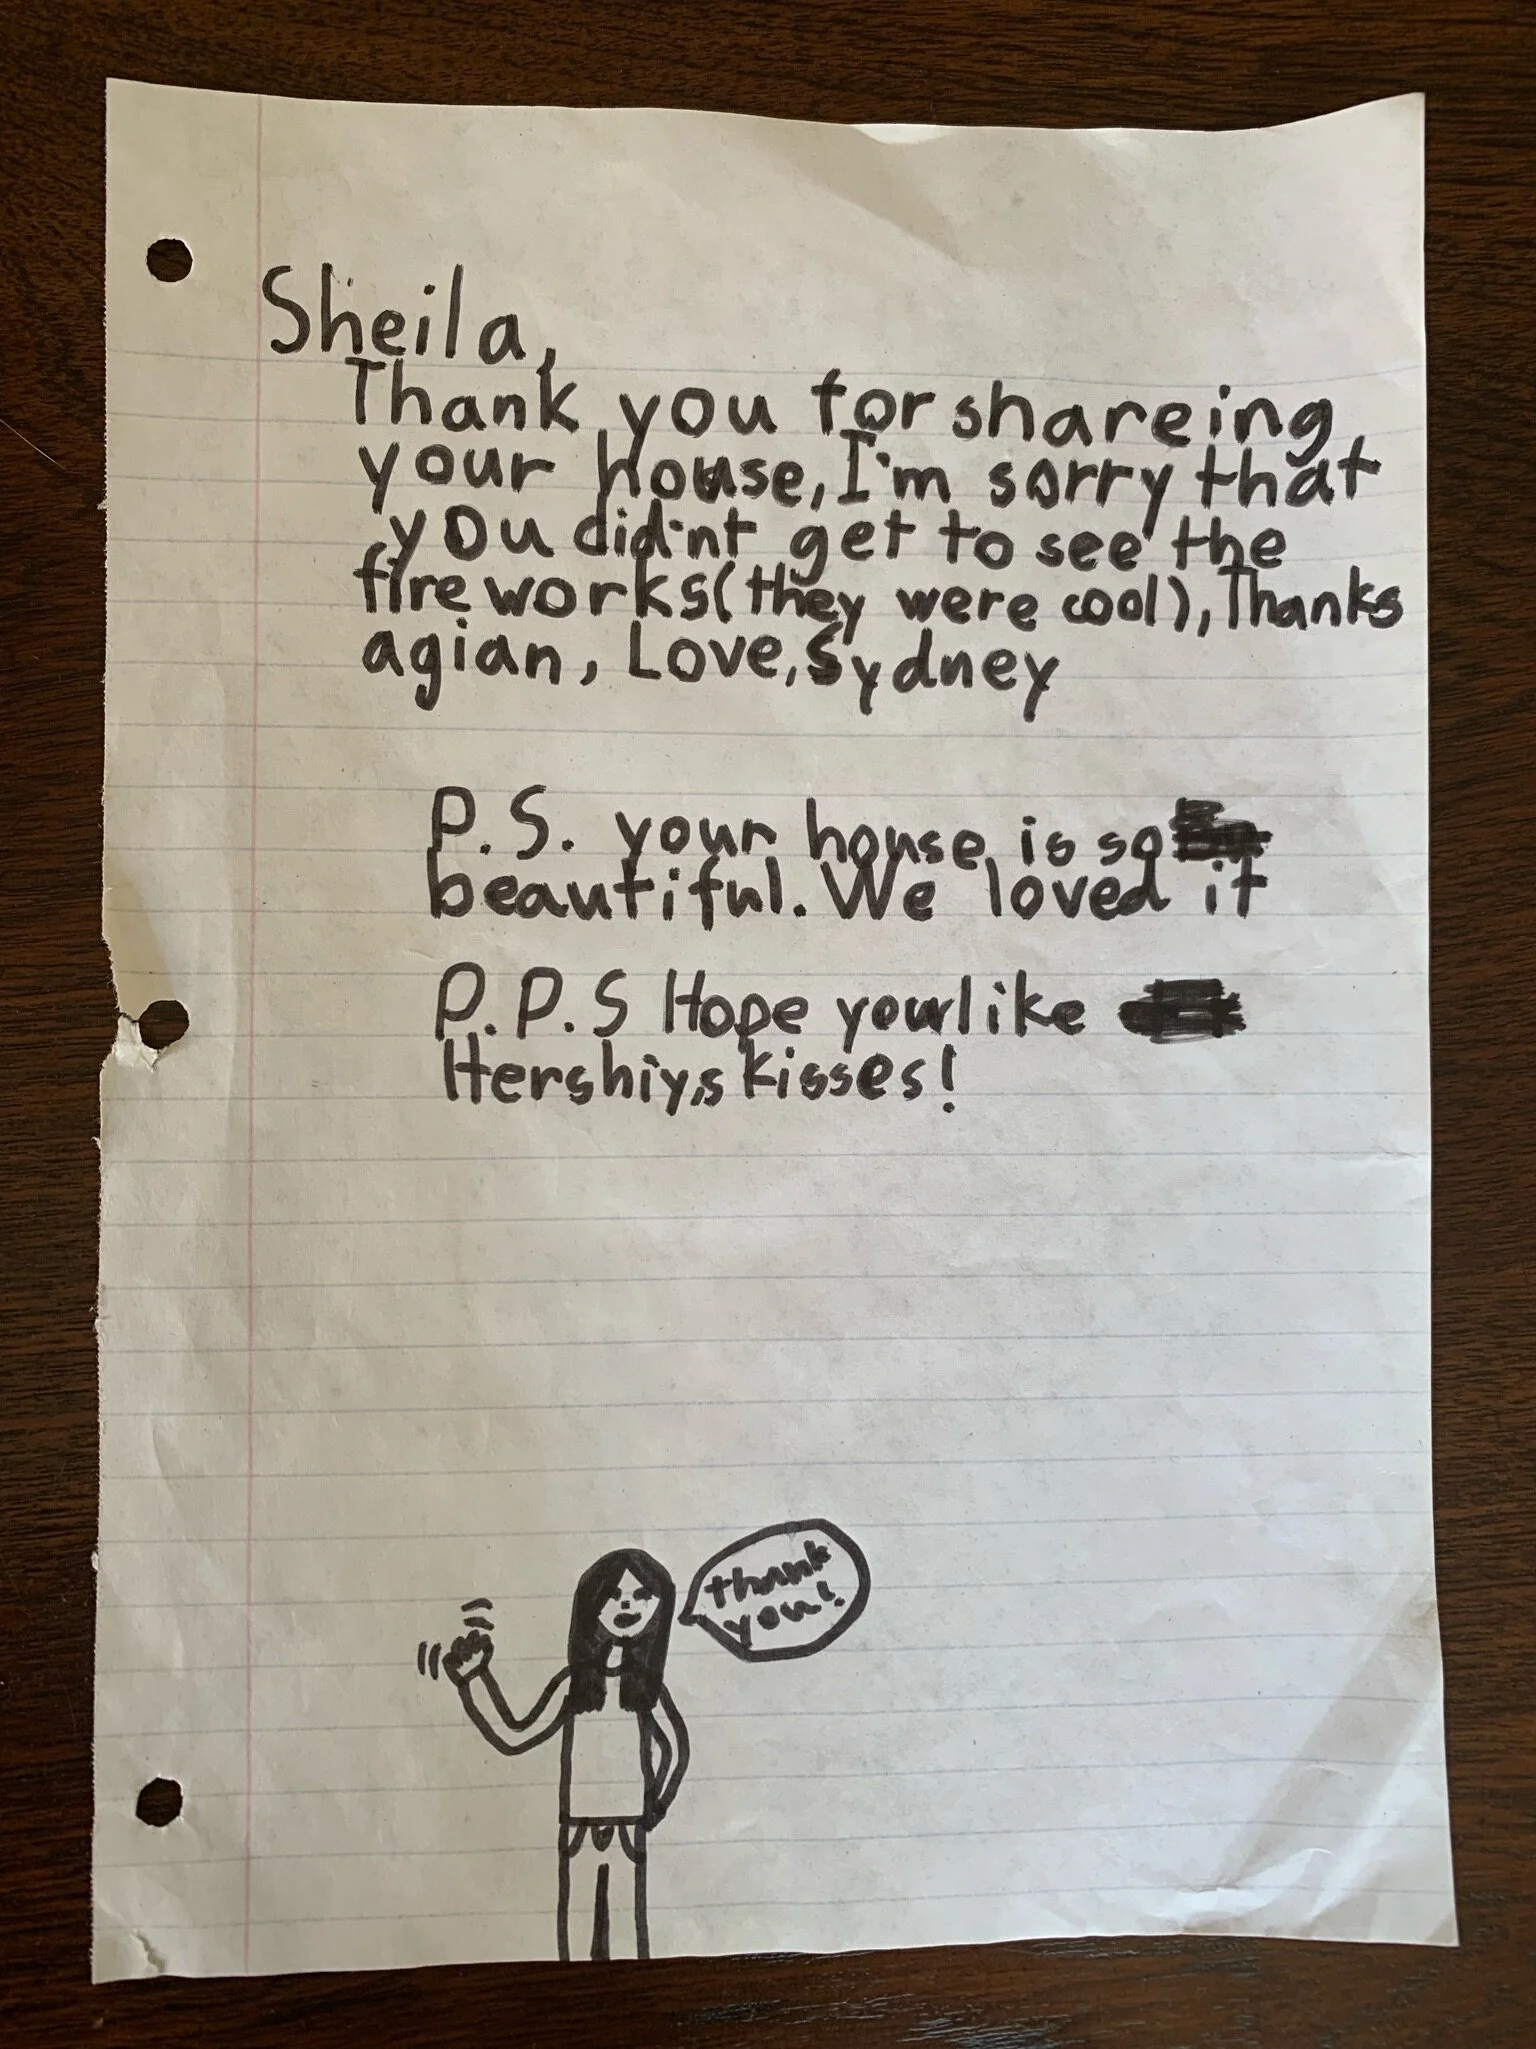 Sheila,
Thank you for shareing
your house, I'm sorry that
you did'nt get to see the
fireworks(they were cool), Thanks
agian, Love, Sydney
P.S. your house is so
beautiful. We loved it
P.P.S Hope you like
Hershiy,s kisses!
thank
you!